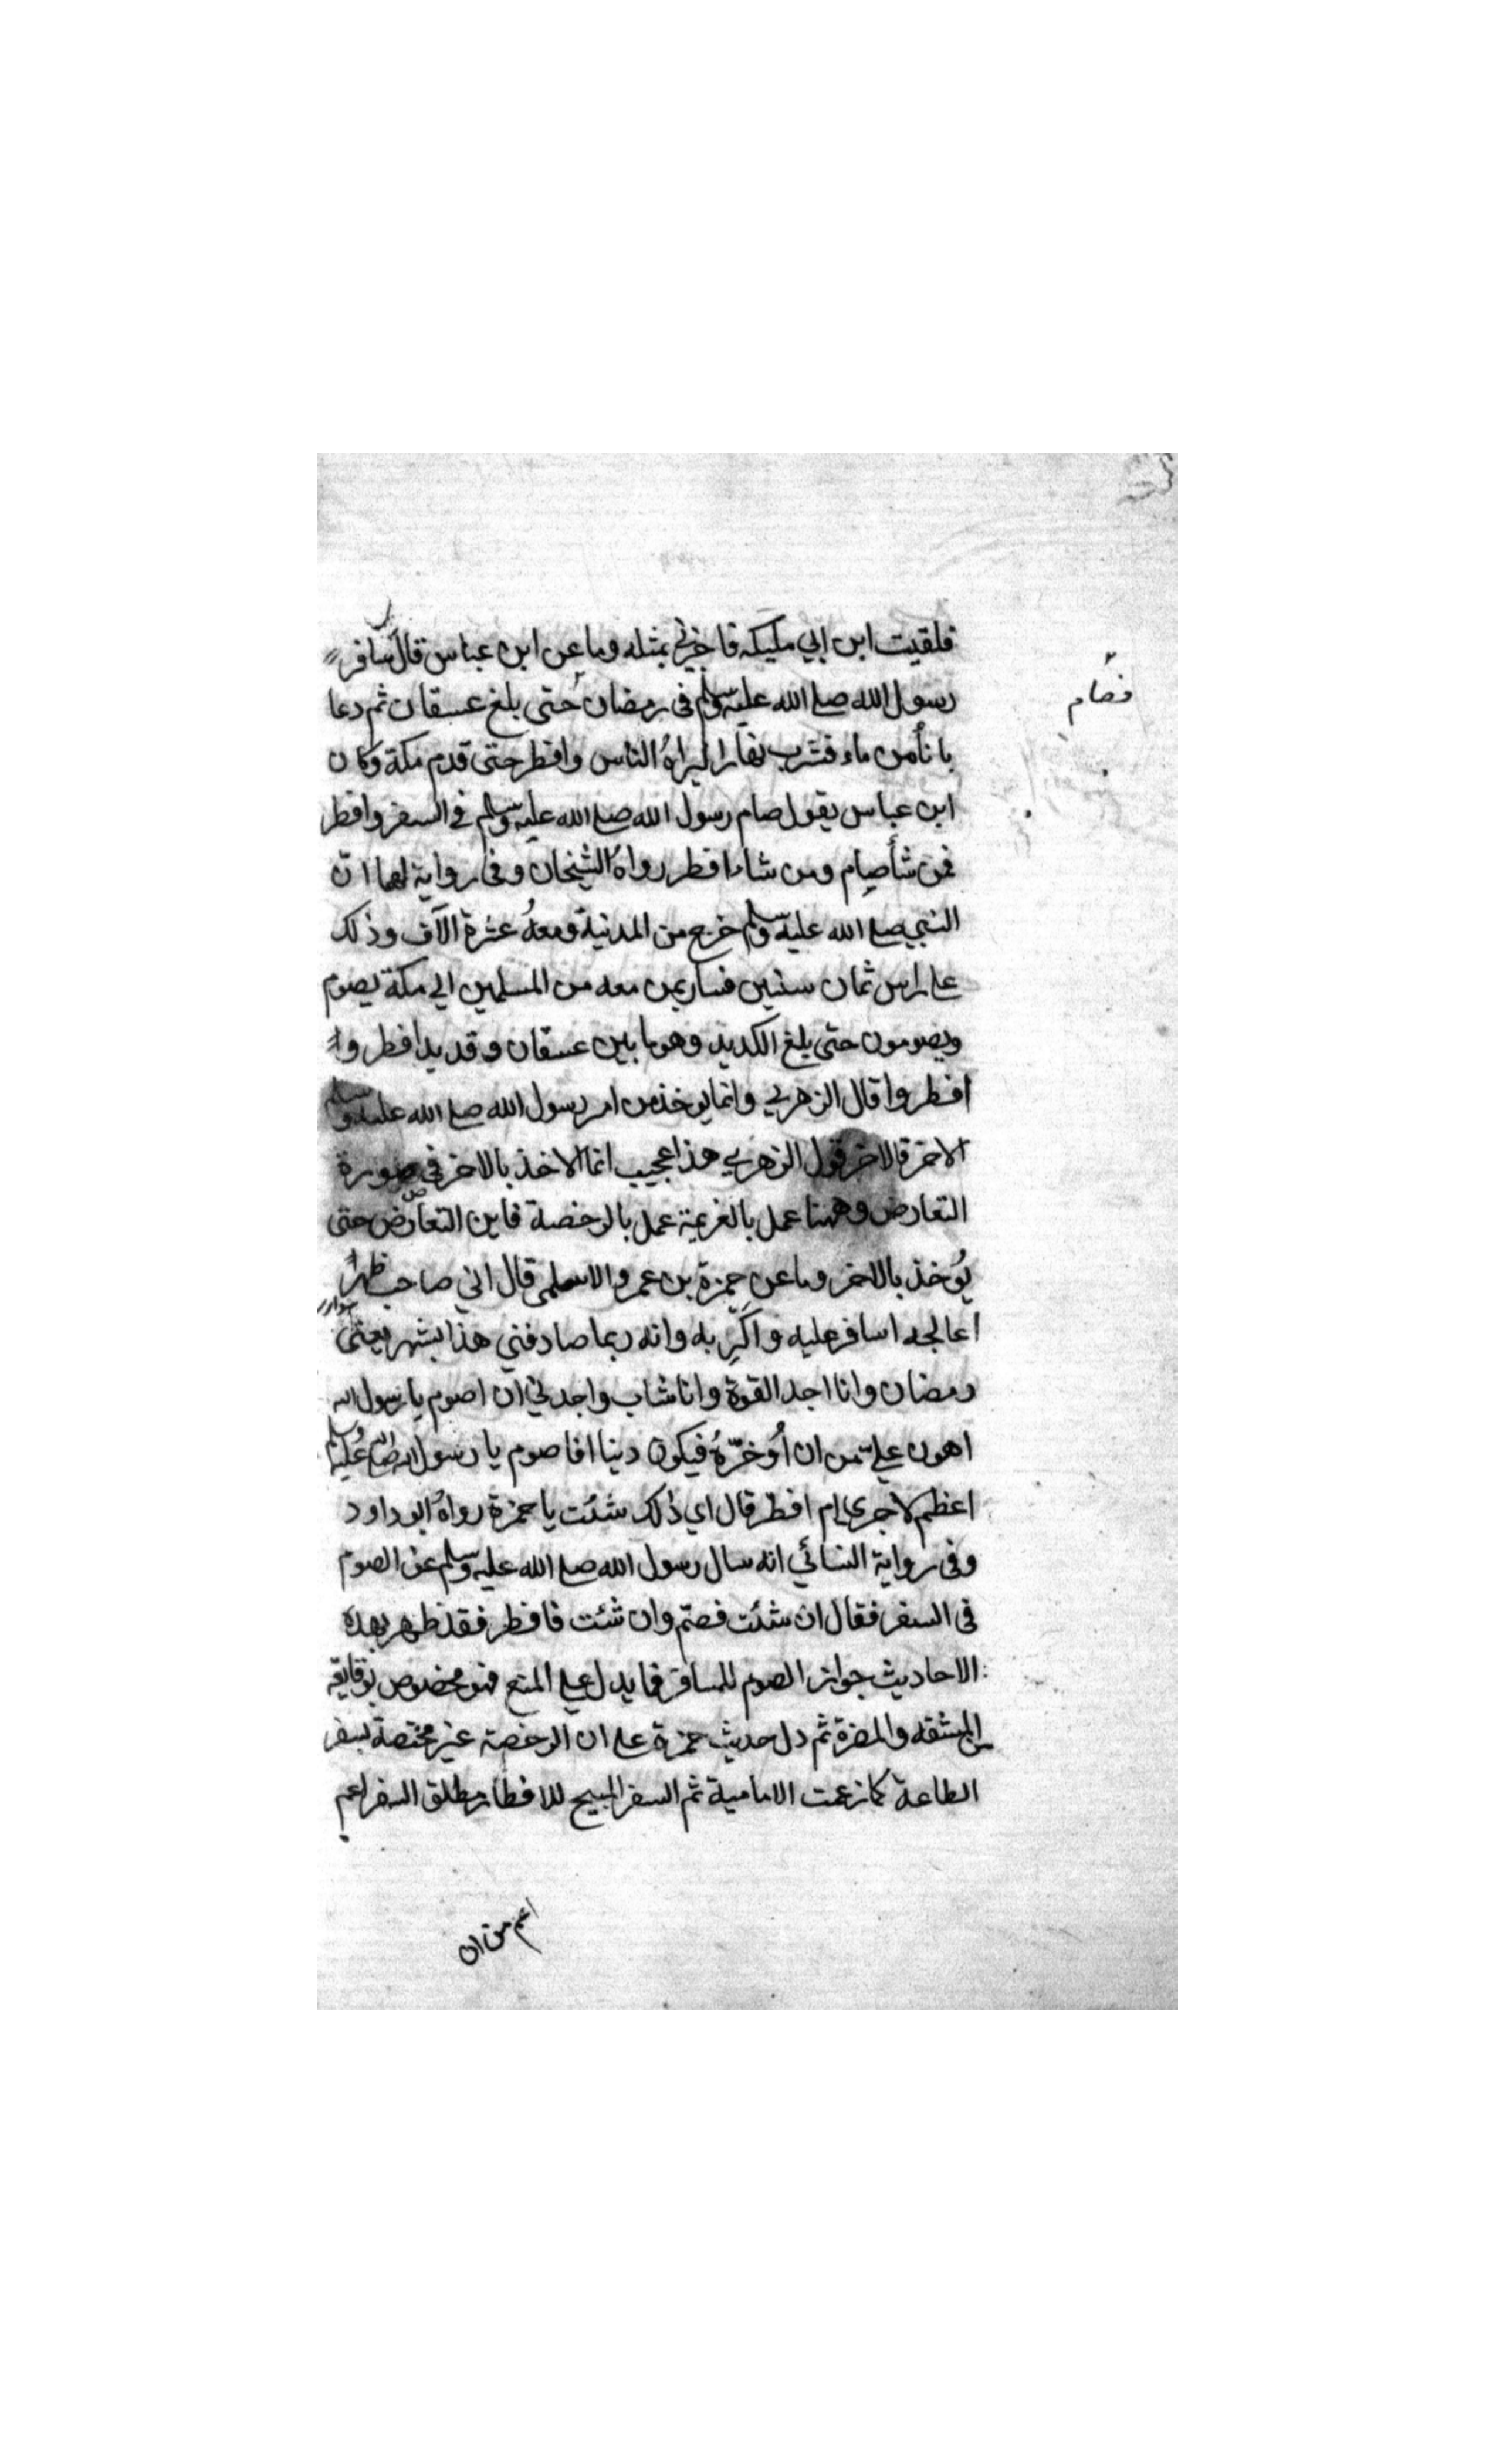 فلقيت ابن ابي مليكه فاخبرني بمثله وما عن ابن عباس قال سافر
رسول الله صلى الله عليه وسلم في رمضان حتى بلغ عسفان ثم دعا
فصام
باناء من ماء فشرب نهارا ليراهُ الناس وافطر حتى قدم مكة وكان
ابن عباس يقول صام رسول الله صلى الله عليه وسلم في السفر وافطر
فمن شاء صام ومن شاء افطر رواهُ الشيخان وفي رواية لهما ان
النبي صلى الله عليه وسلم خرج من المدنية ومعهُ عشرة آلاف وذلك
على راس ثمان سنين فسار بمن معه من المسلمين الى مكة يصوم
ويصومون حتى بلغ الكديد وهو ما بين عسفان وقديد افطر و
افطروا قال الزهري وانما يوخذ من امر رسول الله صلى الله عليه وسلم
الاخر فالاخر قول الزهري هذا عجيب انما الاخذ بالاخر في صورة
التعارض وههنا عمل بالعزيمة عمل بالرخصة فاين التعارض حتى
يُوخذ بالاخر وما عن حمزة بن عمرو الاسلمي قال اني صاحب ظهر
اعالجه اسافر عليه واكري به وانه ربما صادفني هذا الشهر يعني
رمضان وانا اجد القوة وانا شاب واجد لي ان اصوم يا رسول الله
اهون عليّ من ان اُوخرّهُ فيكون دينا افاصوم يا رسول الله صلى الله عليه وسلم
اعظم لاجري ام افطر قال اي ذلك شئت يا حمزة رواهُ ابو داود
وفي رواية النسائي انه سال رسول الله صلى الله عليه وسلم عن الصوم
في السفر فقال ان شئت فصم وان شئت فافطر فقد ظهر بهذه
الاحاديث جواز الصوم للمسافر فما يدل على المنع فهو مخصوص
المشقه والمضرة ثم دل حديث حمزة على ان الرخصة غير مختصة بسفر
الطاعة كما زعمت الامامية ثم السفر المبيح للافطار مطلق السفر اعم
اعم من ان